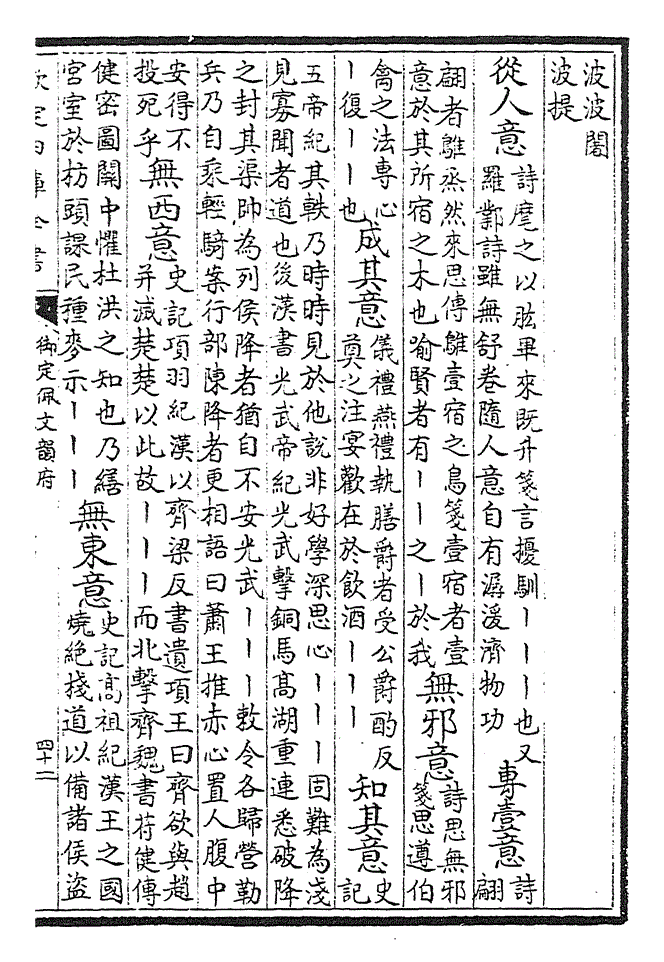 波波闍
波提
從人意
詩麾之以肱畢來既升箋言擾馴丨丨丨也又
羅鄴詩雖無舒卷隨人意自有潺湲濟物功
專壹意
詩
翩
翩者鵻烝然來思傳鵻壹宿之鳥箋壹宿者壹
意於其所宿之木也喻賢者有丨丨之丨於我
無邪意
詩思無邪
箋思遵伯
禽之法專心
丨復丨丨也
成其意
儀禮燕禮執膳爵者受公爵酌反
奠之注宴歡在於飲酒丨丨丨
知其意
史
記
五帝紀其軼乃時時見於他說非好學深思心丨丨丨固難為淺
見寡聞者道也後漢書光武帝紀光武擊銅馬高湖重連悉破降
之封其渠帥為列侯降者猶自不安光武丨丨丨敕令各歸營勒
兵乃自乘輕騎案行部陳降者更相語曰蕭王推赤心置人腹中
安得不
投死乎
無西意
史記項羽紀漢以齊梁反書遺項王曰齊欲與趙
并滅楚楚以此故丨丨丨而北擊齊魏書苻健傳
健密圖關中懼杜洪之知也乃繕
宮室於枋頭課民種麥示丨丨丨
無東意
史記高祖紀漢王之國
燒絕棧道以備諸侯盜
欽定四庫全書
御定佩文韻府
四十二